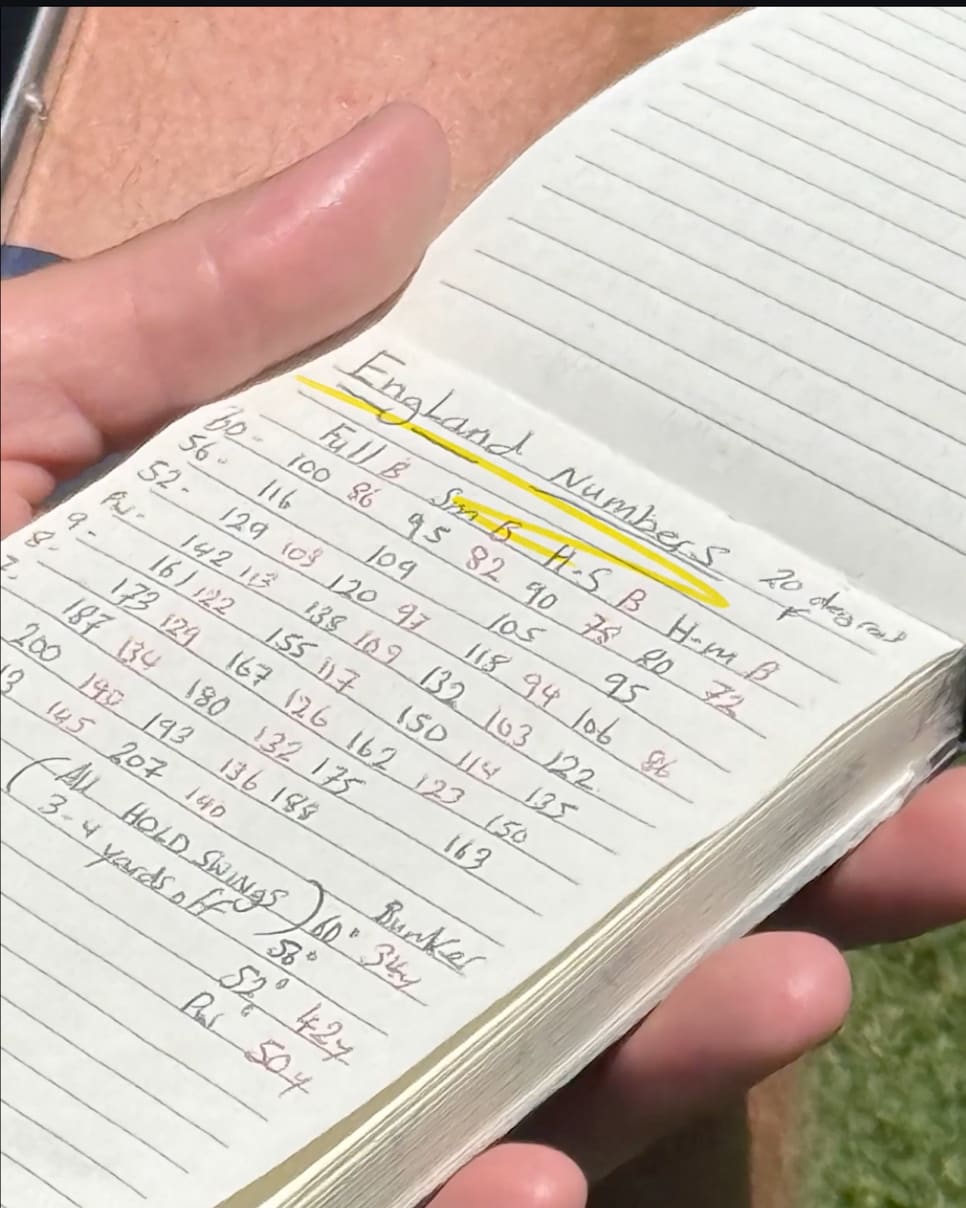 England Numbers 20 degrees
Full B Sm B H-S B H-m B
60- 100 86 95 82 90 78 80 72
56- 116 109 105 95
52- 129 103 120 97 118 94 106 86
Pw- 142 113 138 109 132 103 122
9- 161 122 155 117 150 114 135
8- 173 129 167 126 162 123 150
7- 187 134 180 132 175 163
200 140 193 136 188
13 145 207 140
(All HOLD SWINGS)
(3-4 yards off
Bunker
60° 34y
58°
52° 42y
Pw 50y